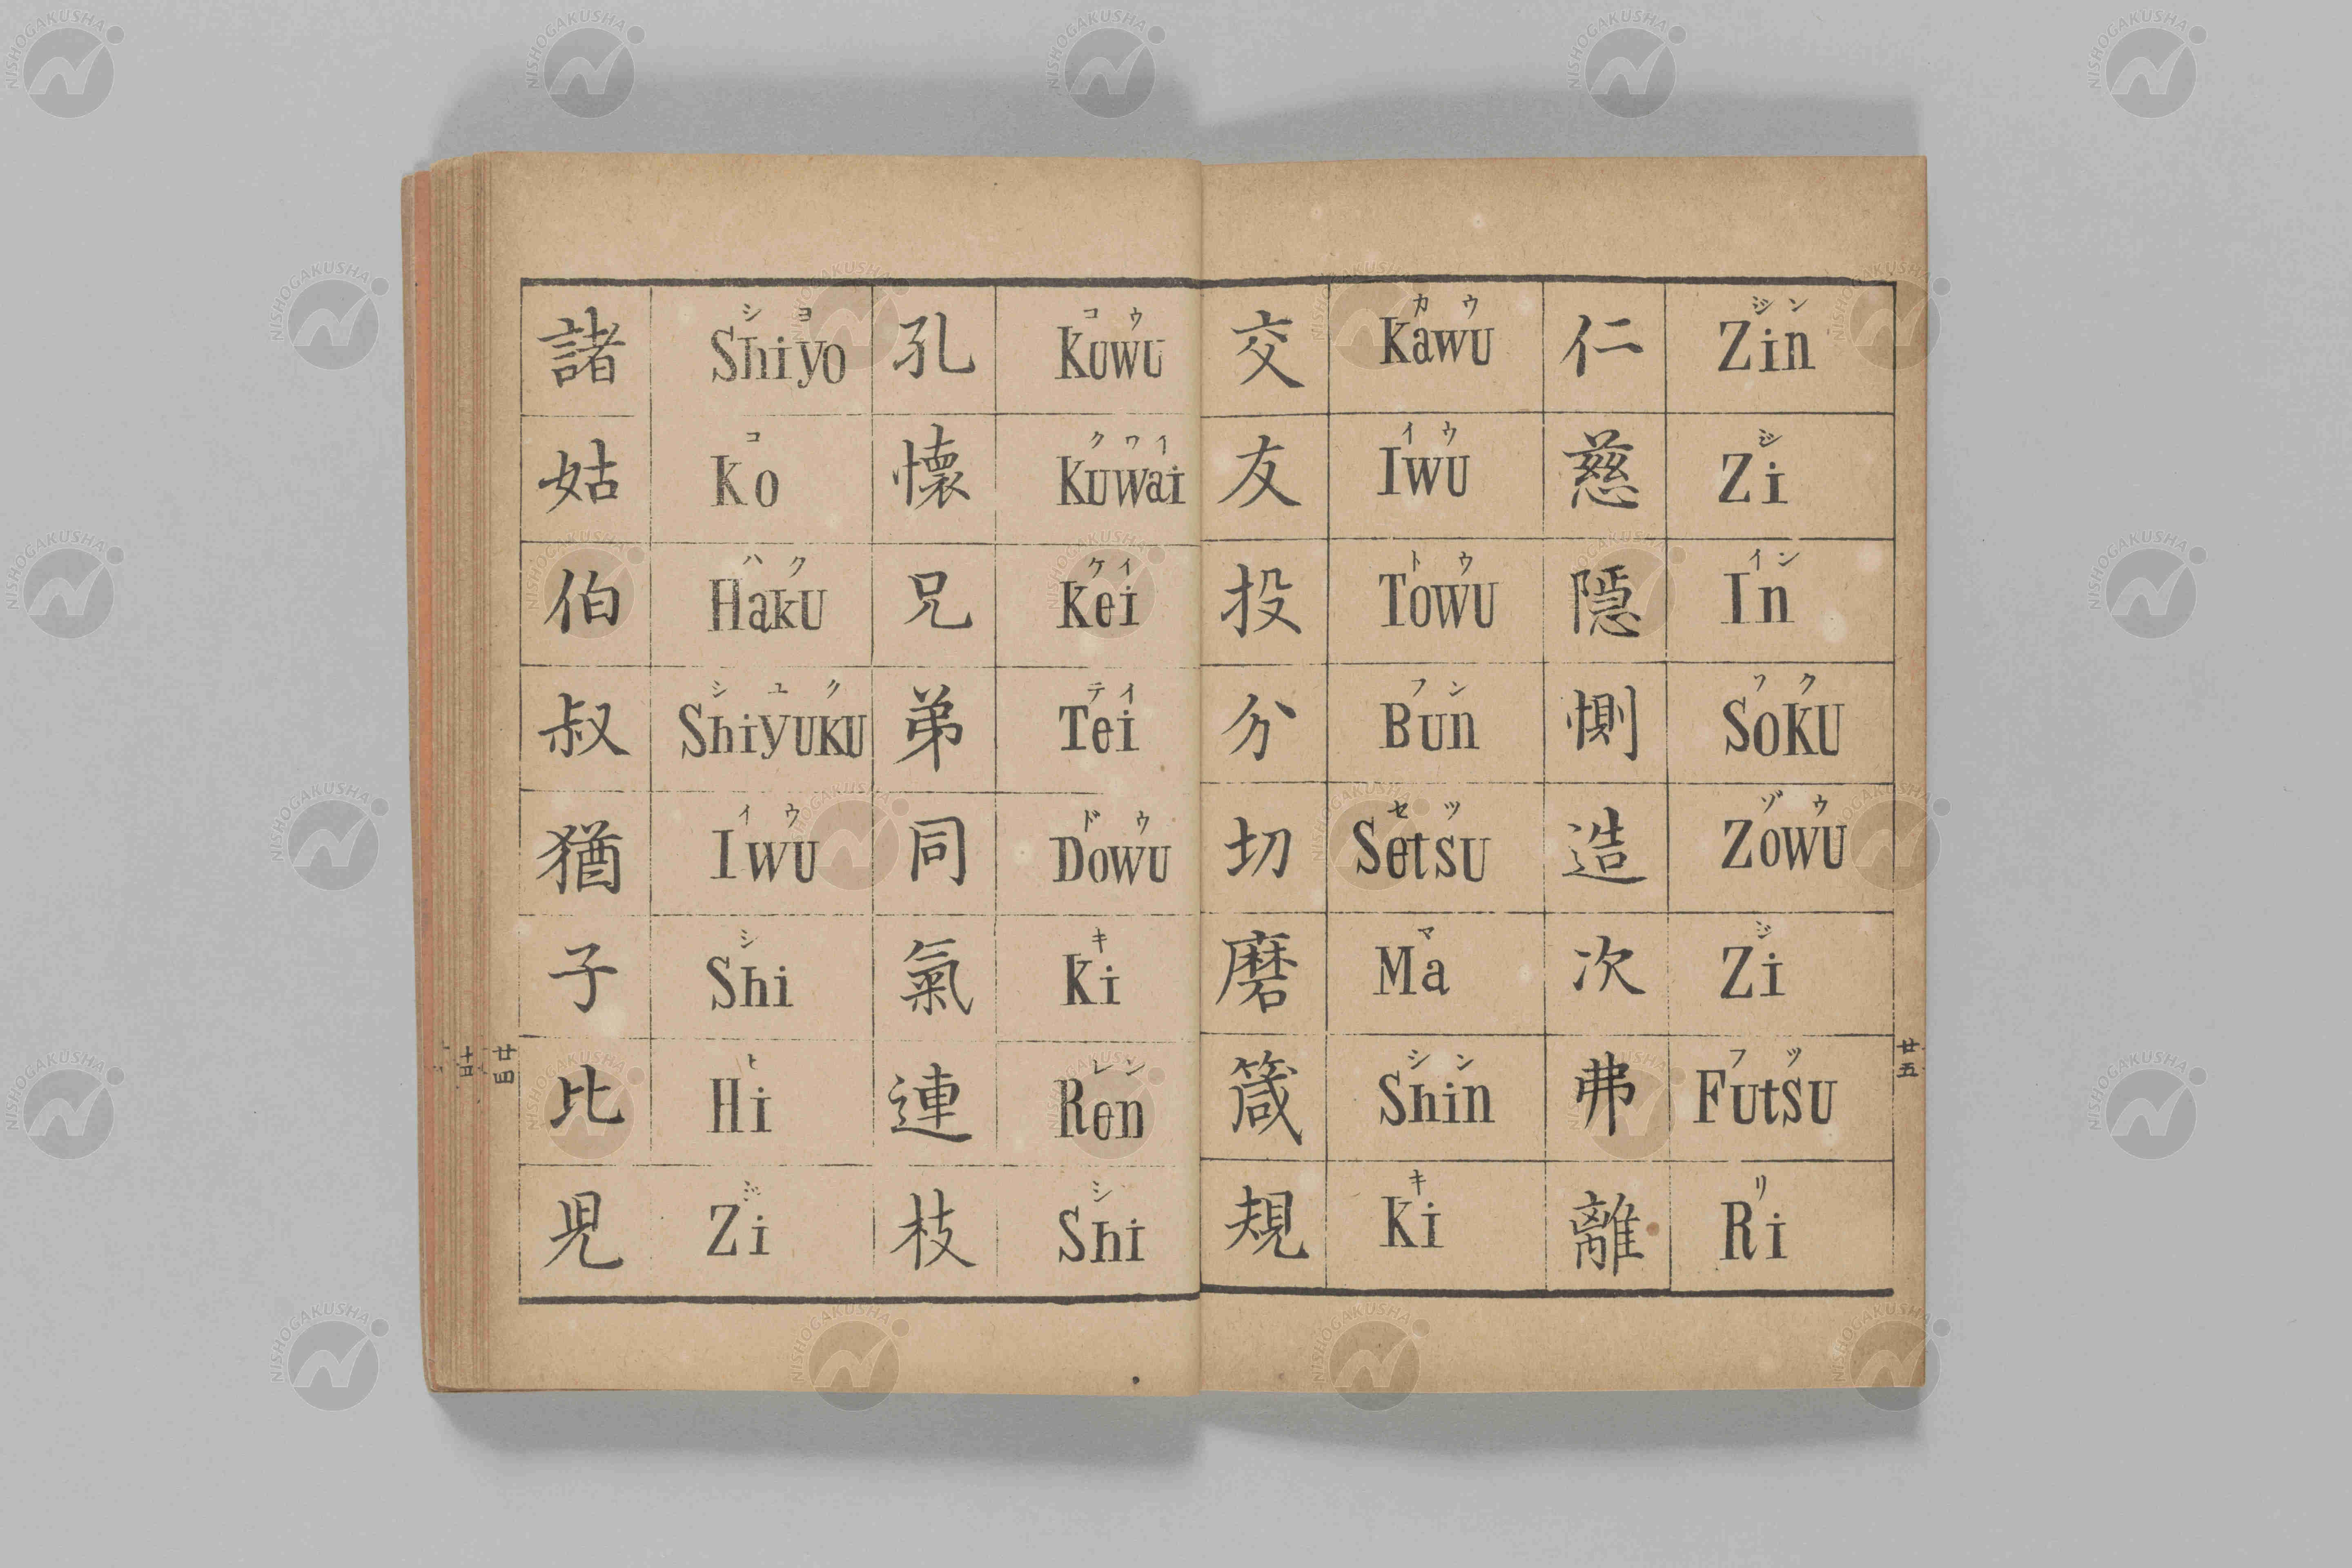 諸 シヨ Shiyo
姑 コ Ko
伯 ハク Haku
叔 シユク Shiyuku
猶 イウ Iwu
子 シ Shi
比 ヒ Hi
児 ジ Zi
孔 コウ Kuwu
懐 クワイ Kuwai
兄 ケイ Kei
弟 テイ Tei
同 ドウ Dowu
氣 キ Ki
連 レン Ren
枝 シ Shi
交 カウ Kawu
友 イウ Iwu
投 トウ Towu
分 フン Bun
切 セツ Setsu
磨 マ Ma
箴 シン Shin
規 キ Ki
仁 ジン Zin
慈 ジ Zi
隠 イン In
惻 ソク Soku
造 ゾウ Zowu
次 ジ Zi
弗 フツ Futsu
離 リ Ri
廿四
廿五
NISHOGAKUSHA